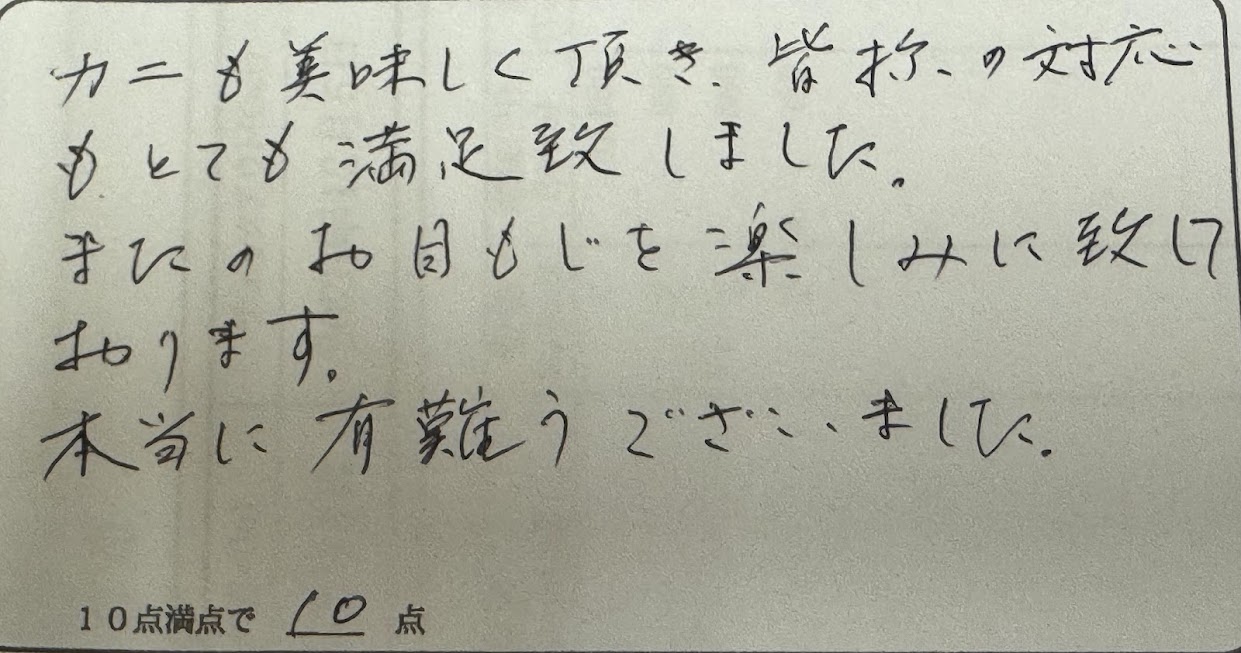 カニも美味しく頂き、皆様の対応
もとても満足致しました。
またのお目もじを楽しみに致して
おります。
本当に有難うございました。
10点満点で 10 点